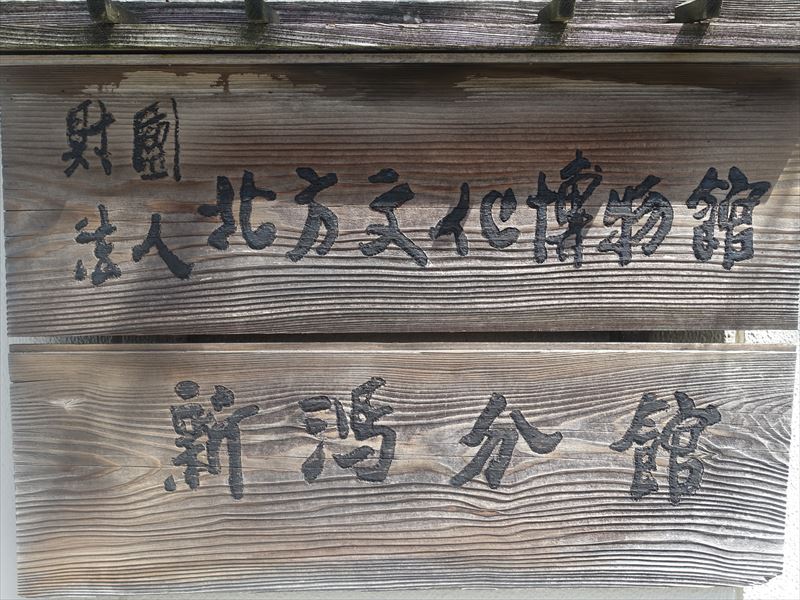 財團
法人
北方文化博物館
新潟分館